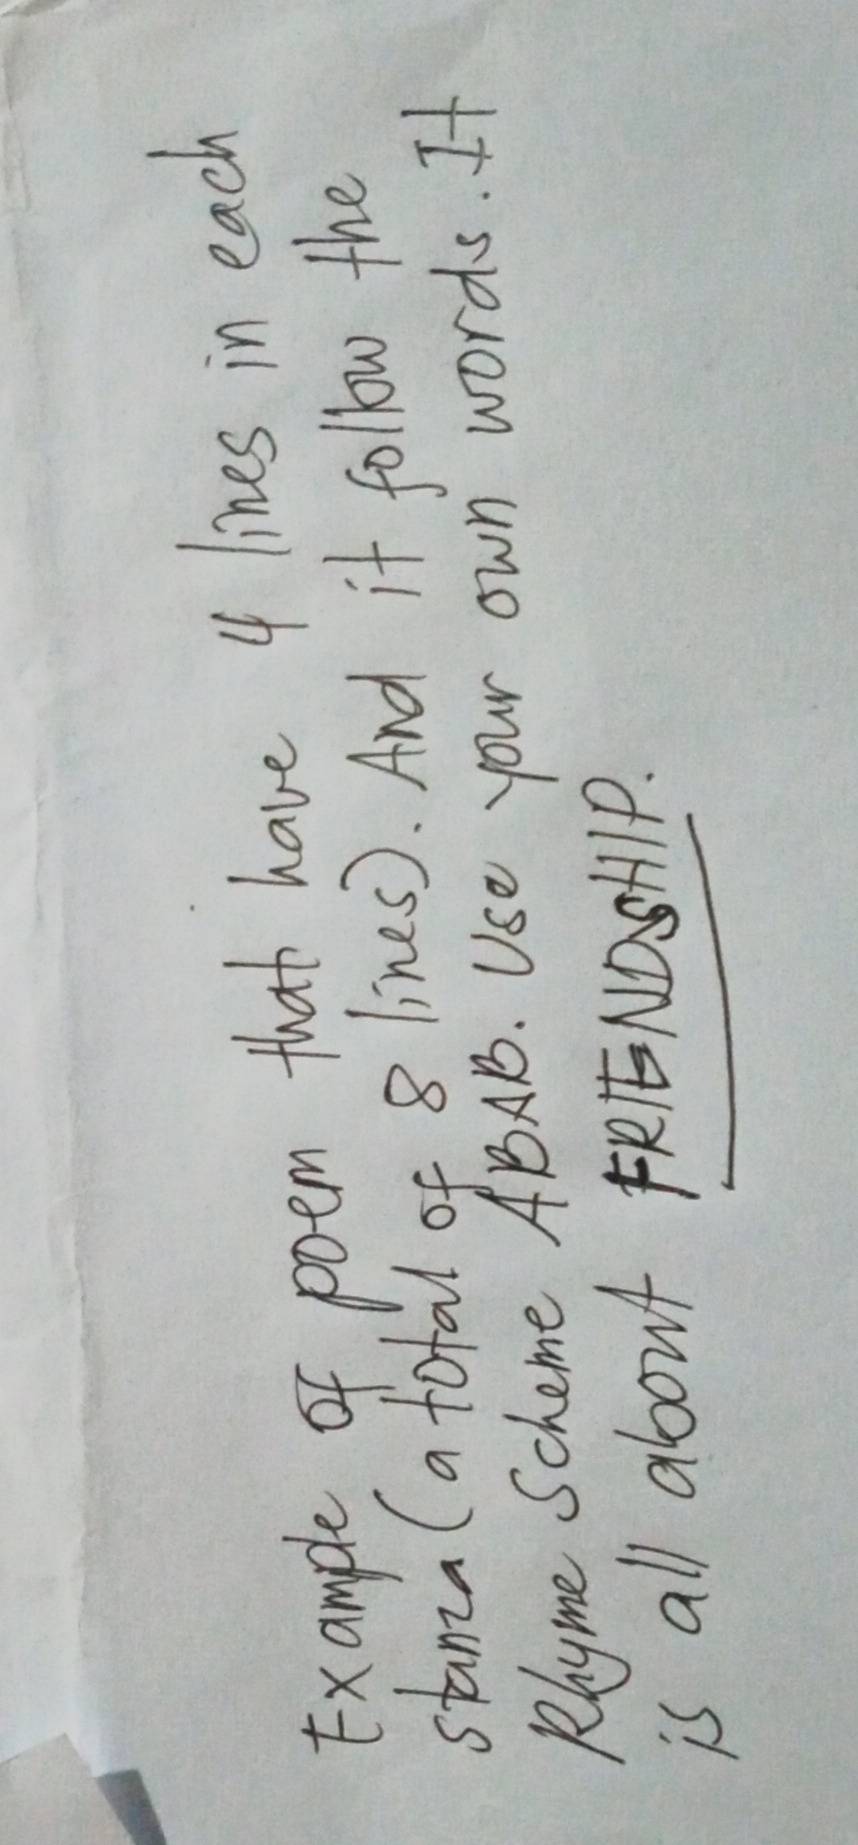 Example of poem that have 4 lines in each
stanza (a total of 8 lines). And it follow the
Rhyme Scheme ABAB. Use your own words. It
is all about FRIENDSHIP.